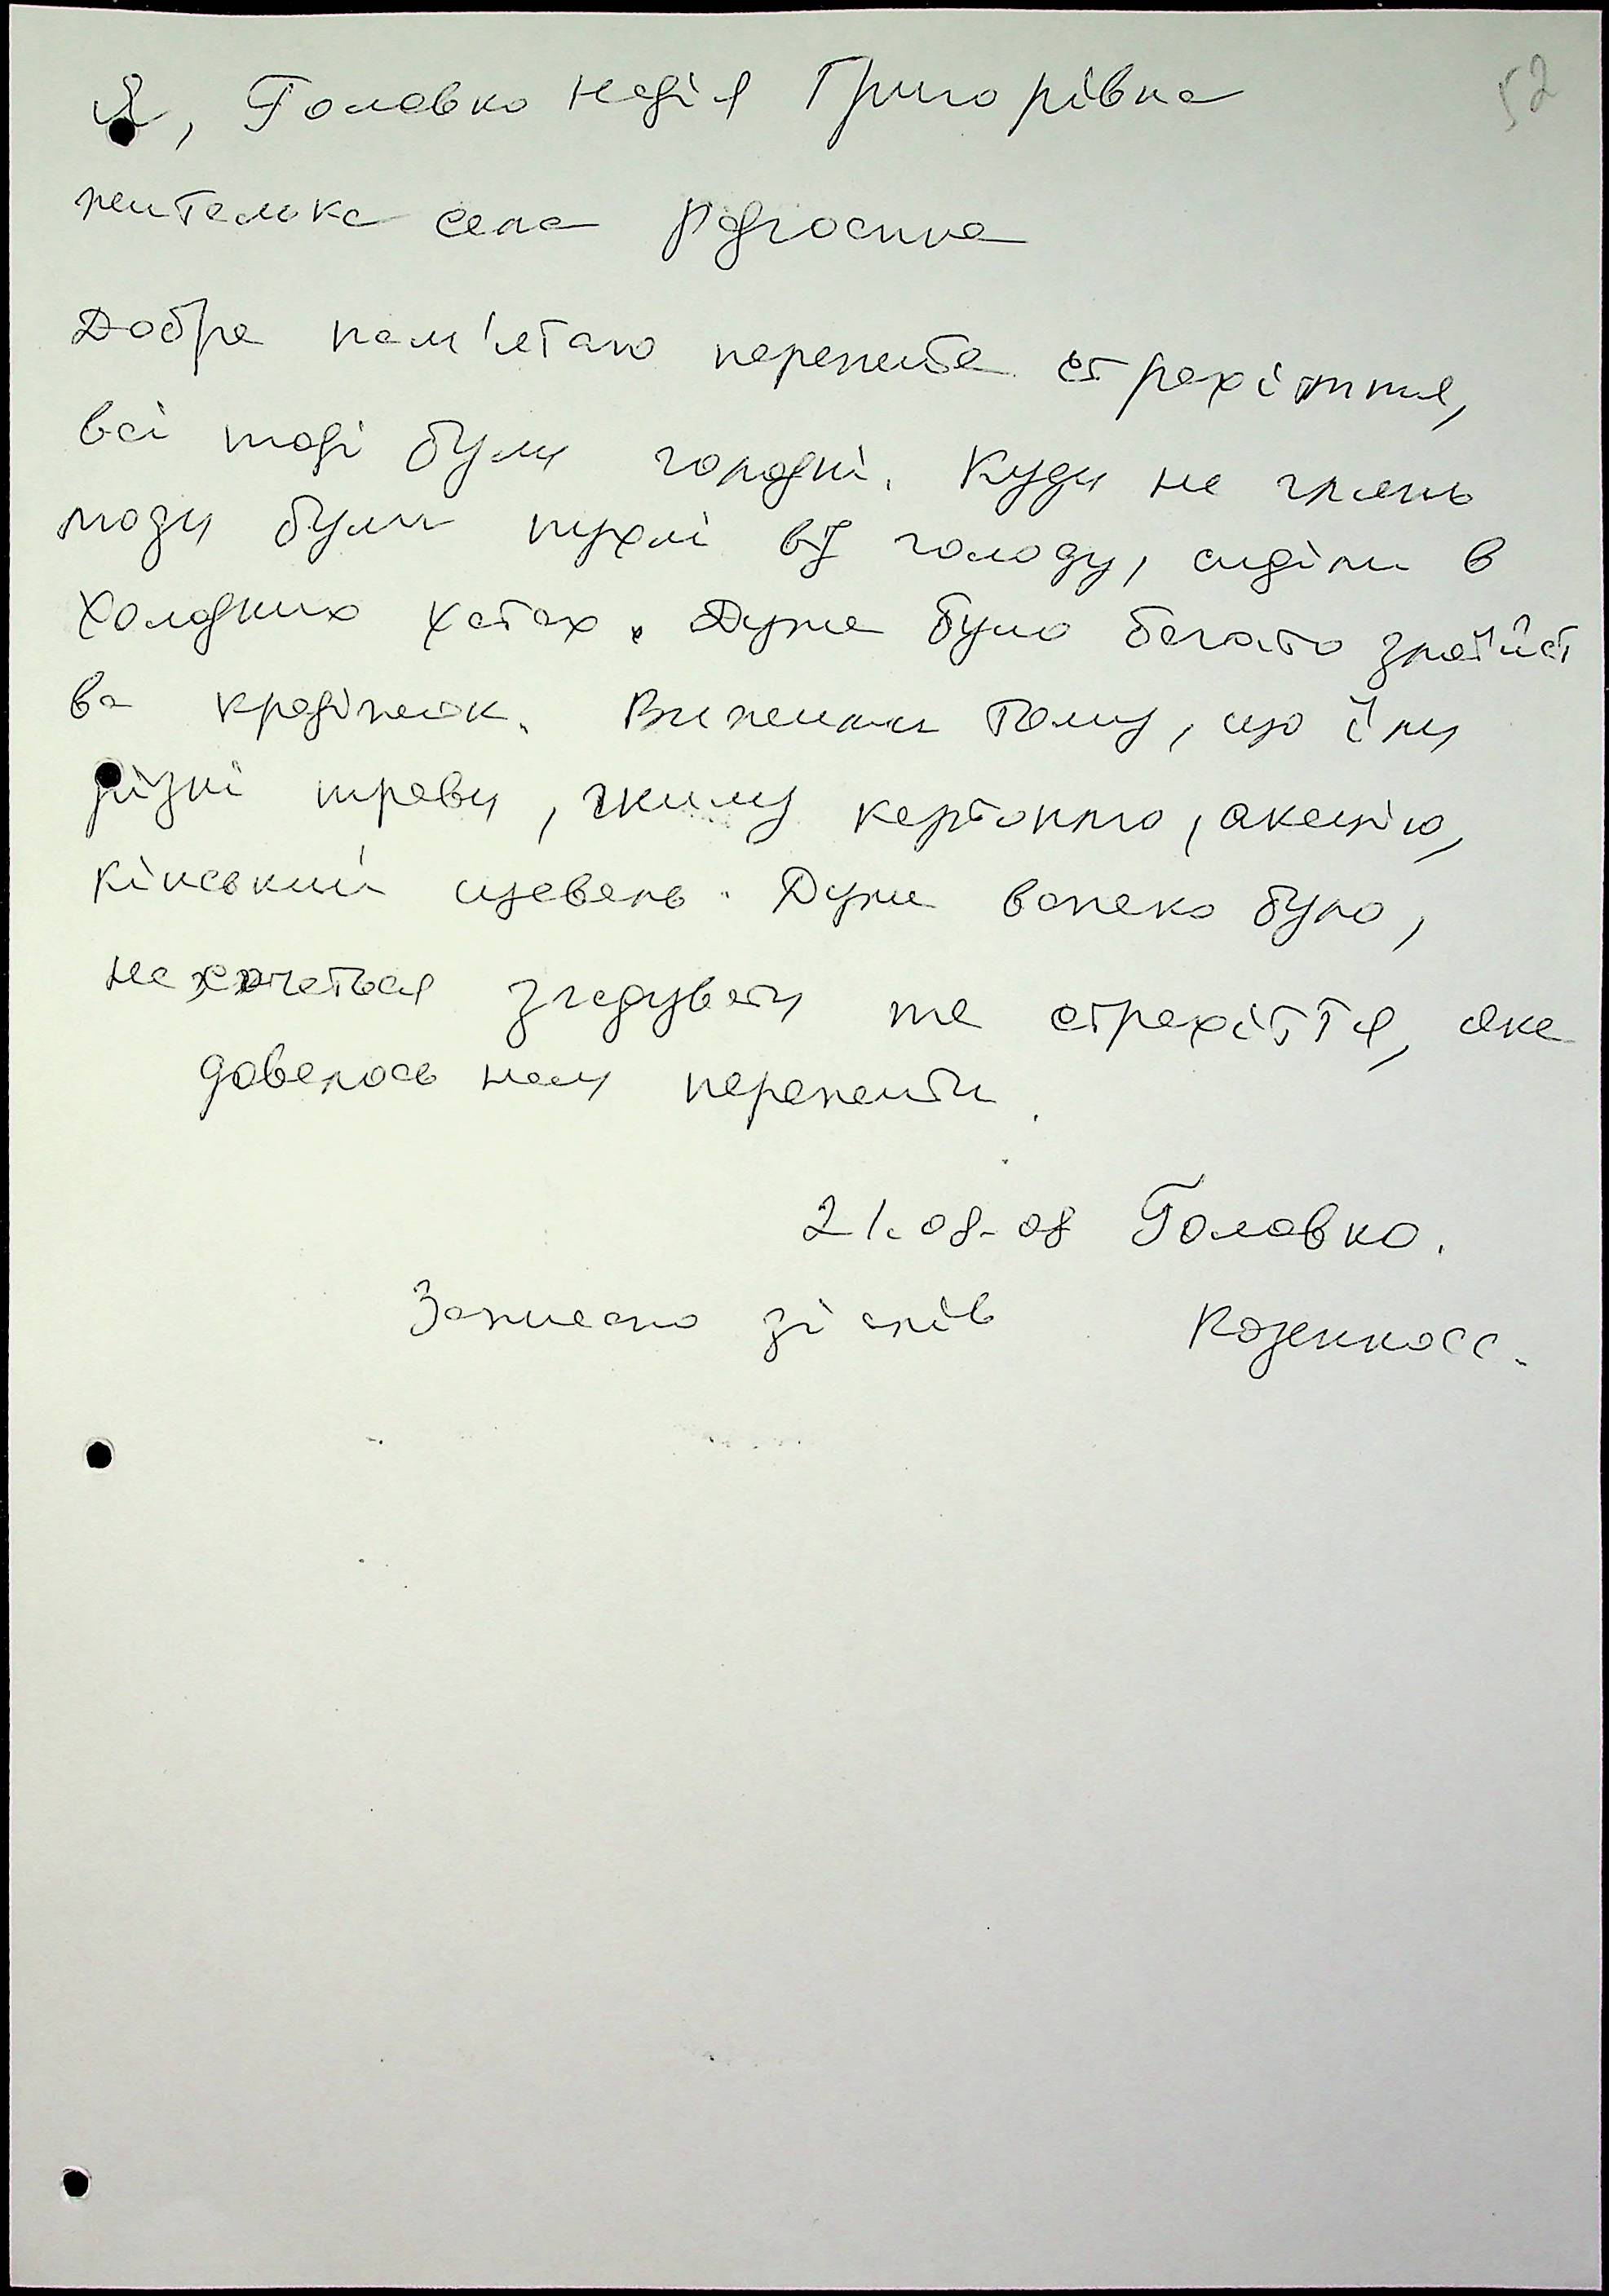 52
Я, Головко Надія Григорівна
жителька села Радгоспне
Добре пам'ятаю пережите страхіття,
всі тоді були голодні. Куди не глянь
люди були пухлі від голоду, сиділи в
холодних хатах. Дуже було багато злодійст
ва крадіжок. Вижили тому, що їли
різні трави, гнилу картоплю, акацію,
кінський щавель. Дуже важко було,
не хочеться згадувати те страхіття, яке
довелось нам пережити.
21.08.08 Головко.
Записано зі слів